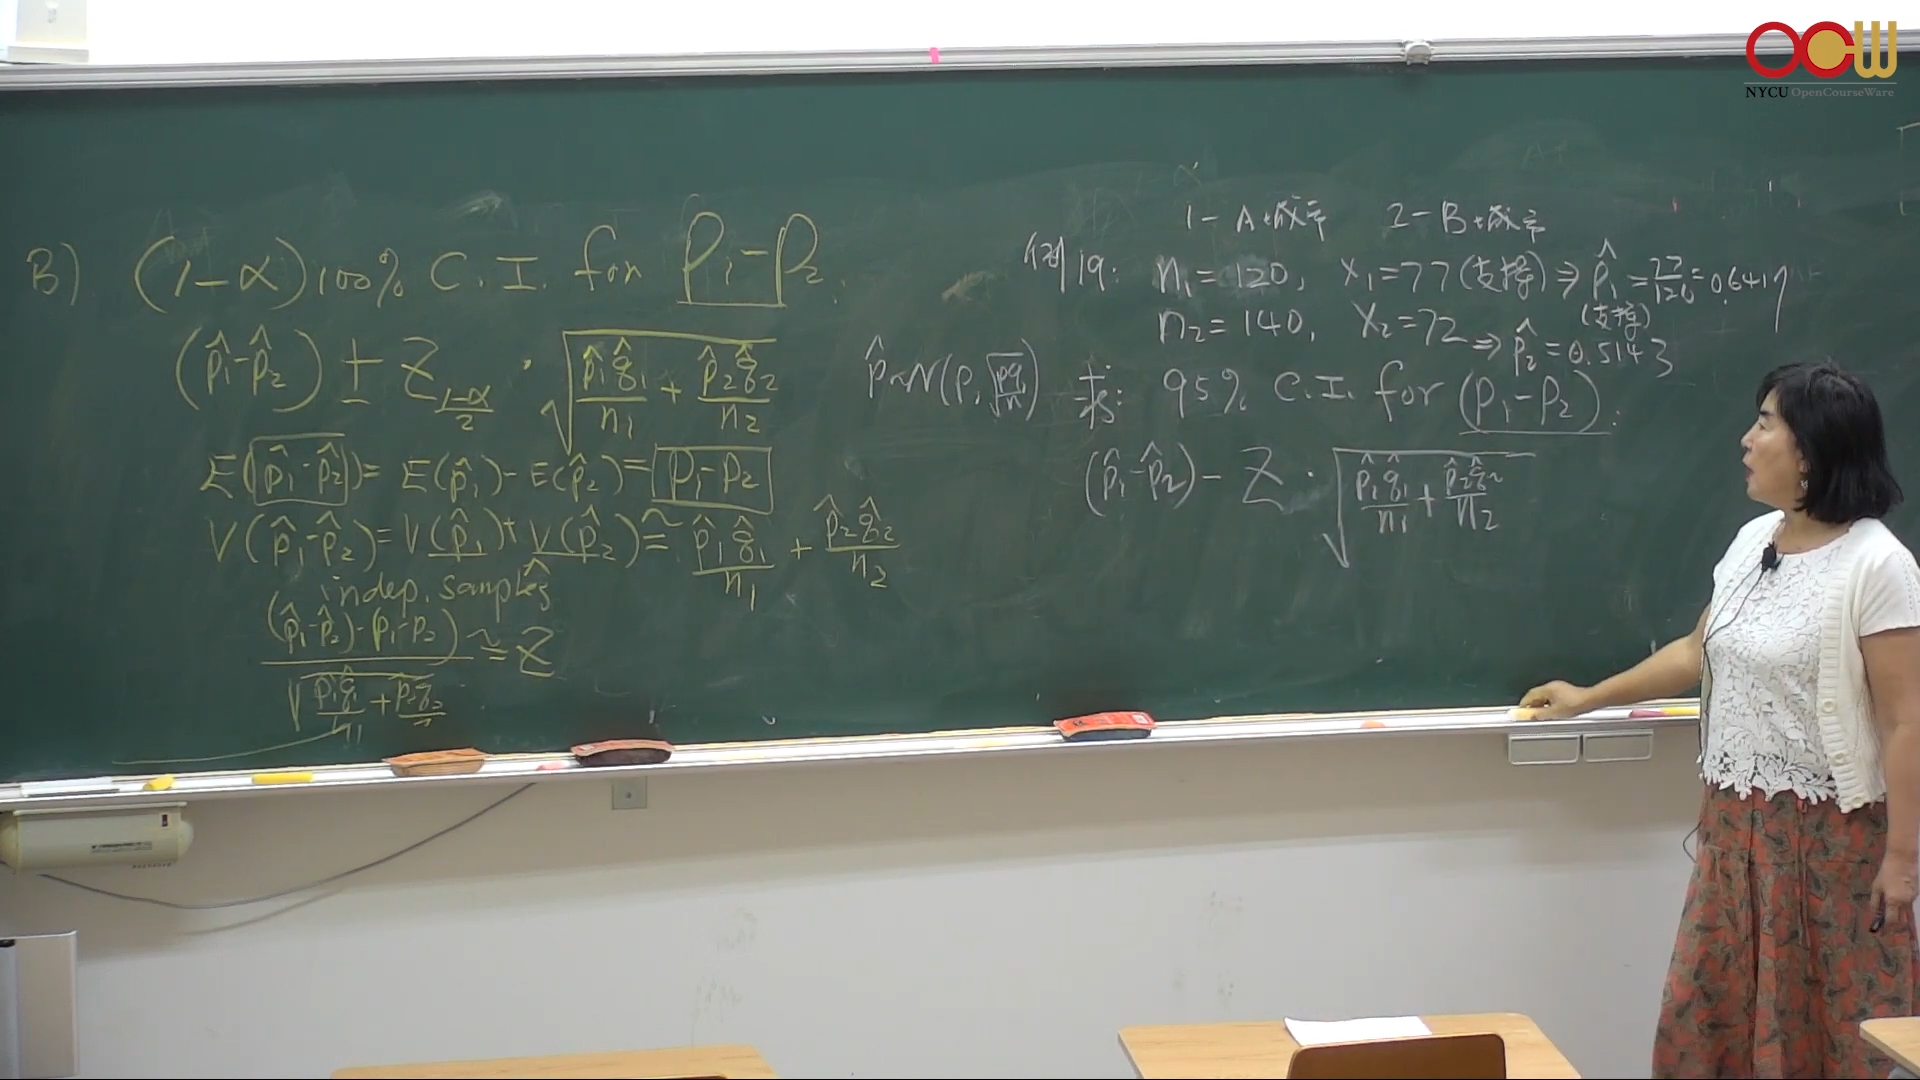 OCW
NYCU OpenCourseWare
B) (1-α)100% C.I. for p₁-p₂.
(p̂₁-p̂₂) ± Z_{(1-α)/2} · √(p̂₁q̂₁/n₁ + p̂₂q̂₂/n₂)
E(p̂₁-p̂₂) = E(p̂₁) - E(p̂₂) = p₁-p₂
V(p̂₁-p̂₂) = V(p̂₁) + V(p̂₂) ≅ p̂₁q̂₁/n₁ + p̂₂q̂₂/n₂
indep. samples
((p̂₁-p̂₂)-(p₁-p₂)) / √(p̂₁q̂₁/n₁ + p̂₂q̂₂/n) ≅ Z
1- A 2- B
例19: n₁=120, x₁=77 (支援) ⇒ p̂₁ = 77/120 = 0.6417
n₂=140, x₂=72 (支援) ⇒ p̂₂ = 0.5143
p̂~N(p, √(pq/n))
求: 95% C.I. for (p₁-p₂).
(p̂₁-p̂₂) - Z · √(p̂₁q̂₁/n₁ + p̂₂q̂₂/n₂)